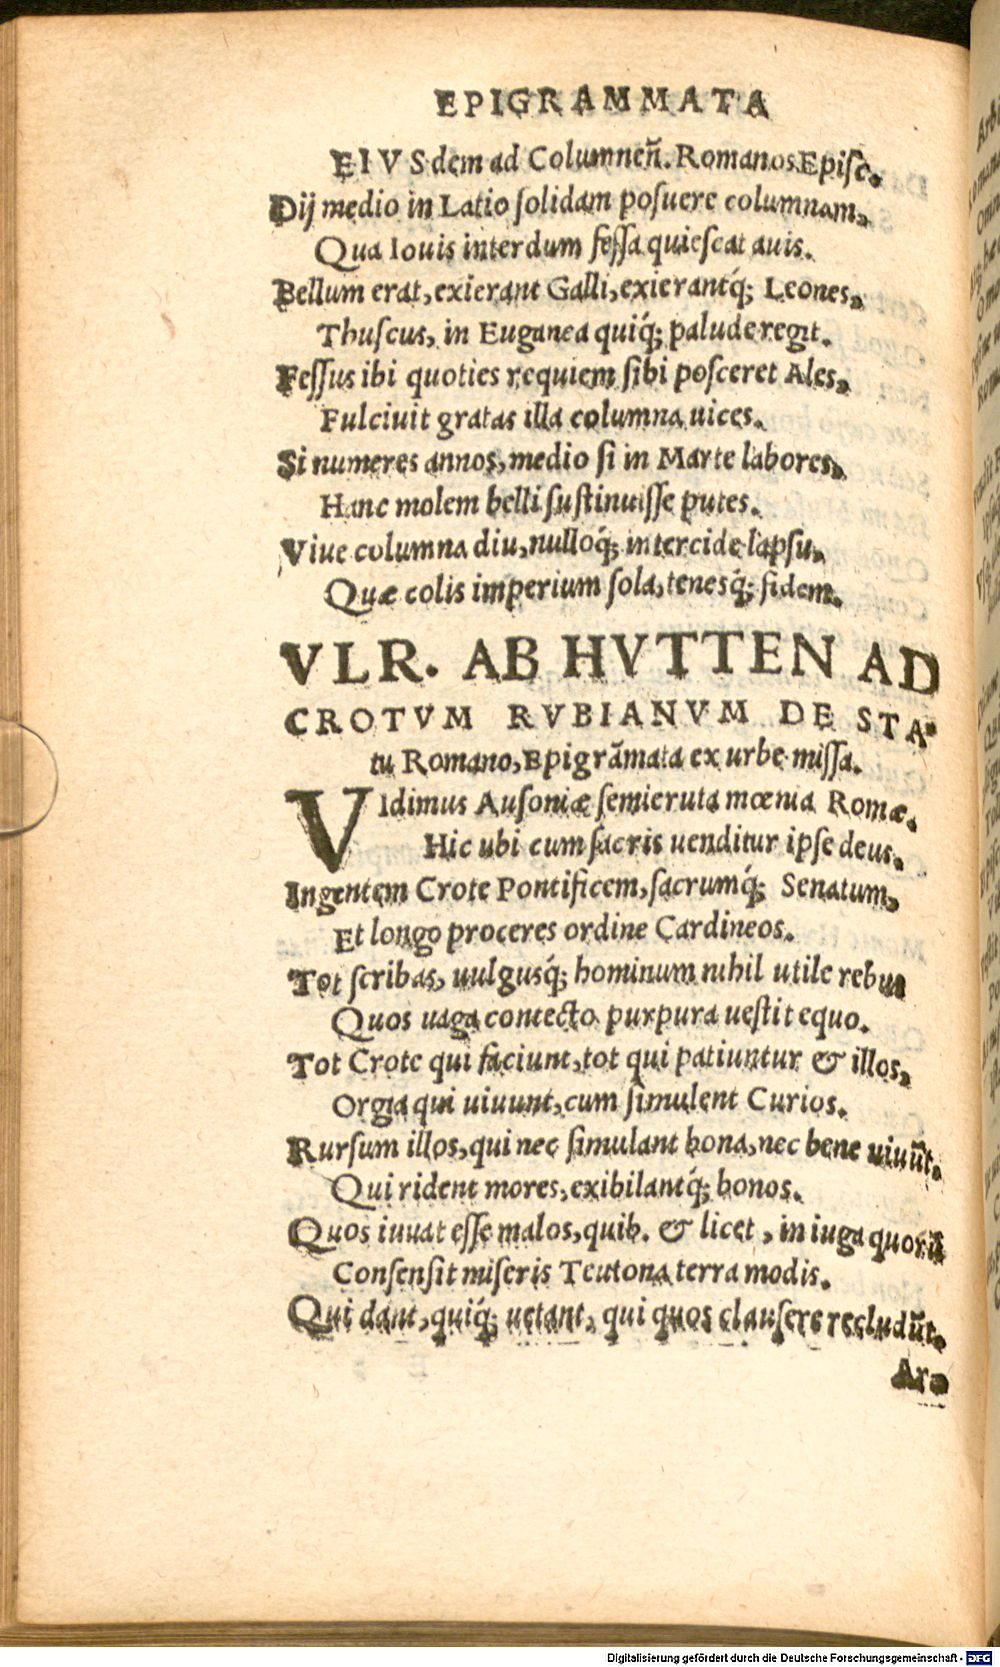 EPIGRAMMATA
EIVSdem ad Columnen̄. Romanos Episc.
Dij medio in Latio ſolidam poſuere columnam,
Qua Iouis interdum feſſa quieſcat auis.
Bellum erat, exierant Galli, exierantq́; Leones,
Thuſcus, in Euganea quiq́; palude regit.
Feſſus ibi quoties requiem ſibi poſceret Ales,
Fulciuit gratas illa columna uices.
Si numeres annos, medio ſi in Marte labores,
Hanc molem belli ſuſtinuiſſe putes.
Viue columna diu, nulloq́; intercide lapſu,
Quæ colis imperium ſola, tenesq́; fidem.
VLR. AB HVTTEN AD
CROTVM RVBIANVM DE STA-
tu Romano, Epigrāmata ex urbe miſſa.
VIdimus Auſoniæ ſemieruta mœnia Romæ.
Hic ubi cum ſacris uenditur ipſe deus.
Ingentem Crote Pontificem, ſacrumq́; Senatum,
Et longo proceres ordine Cardineos.
Tot ſcribas, uulgusq́; hominum nihil utile rebus
Quos uaga contecto purpura ueſtit equo.
Tot Crote qui faciunt, tot qui patiuntur & illos,
Orgia qui uiuunt, cum ſimulent Curios.
Rurſum illos, qui nec ſimulant bona, nec bene uiuūt.
Qui rident mores, exibilantq́; bonos.
Quos iuuat eſſe malos, quib. & licet, in iuga quorū
Conſenſit miſeris Teutona terra modis.
Qui dant, quiq́; uetant, qui quos clauſere recludūt.
Ar-
Digitalisierung gefördert durch die Deutsche Forschungsgemeinschaft - DFG